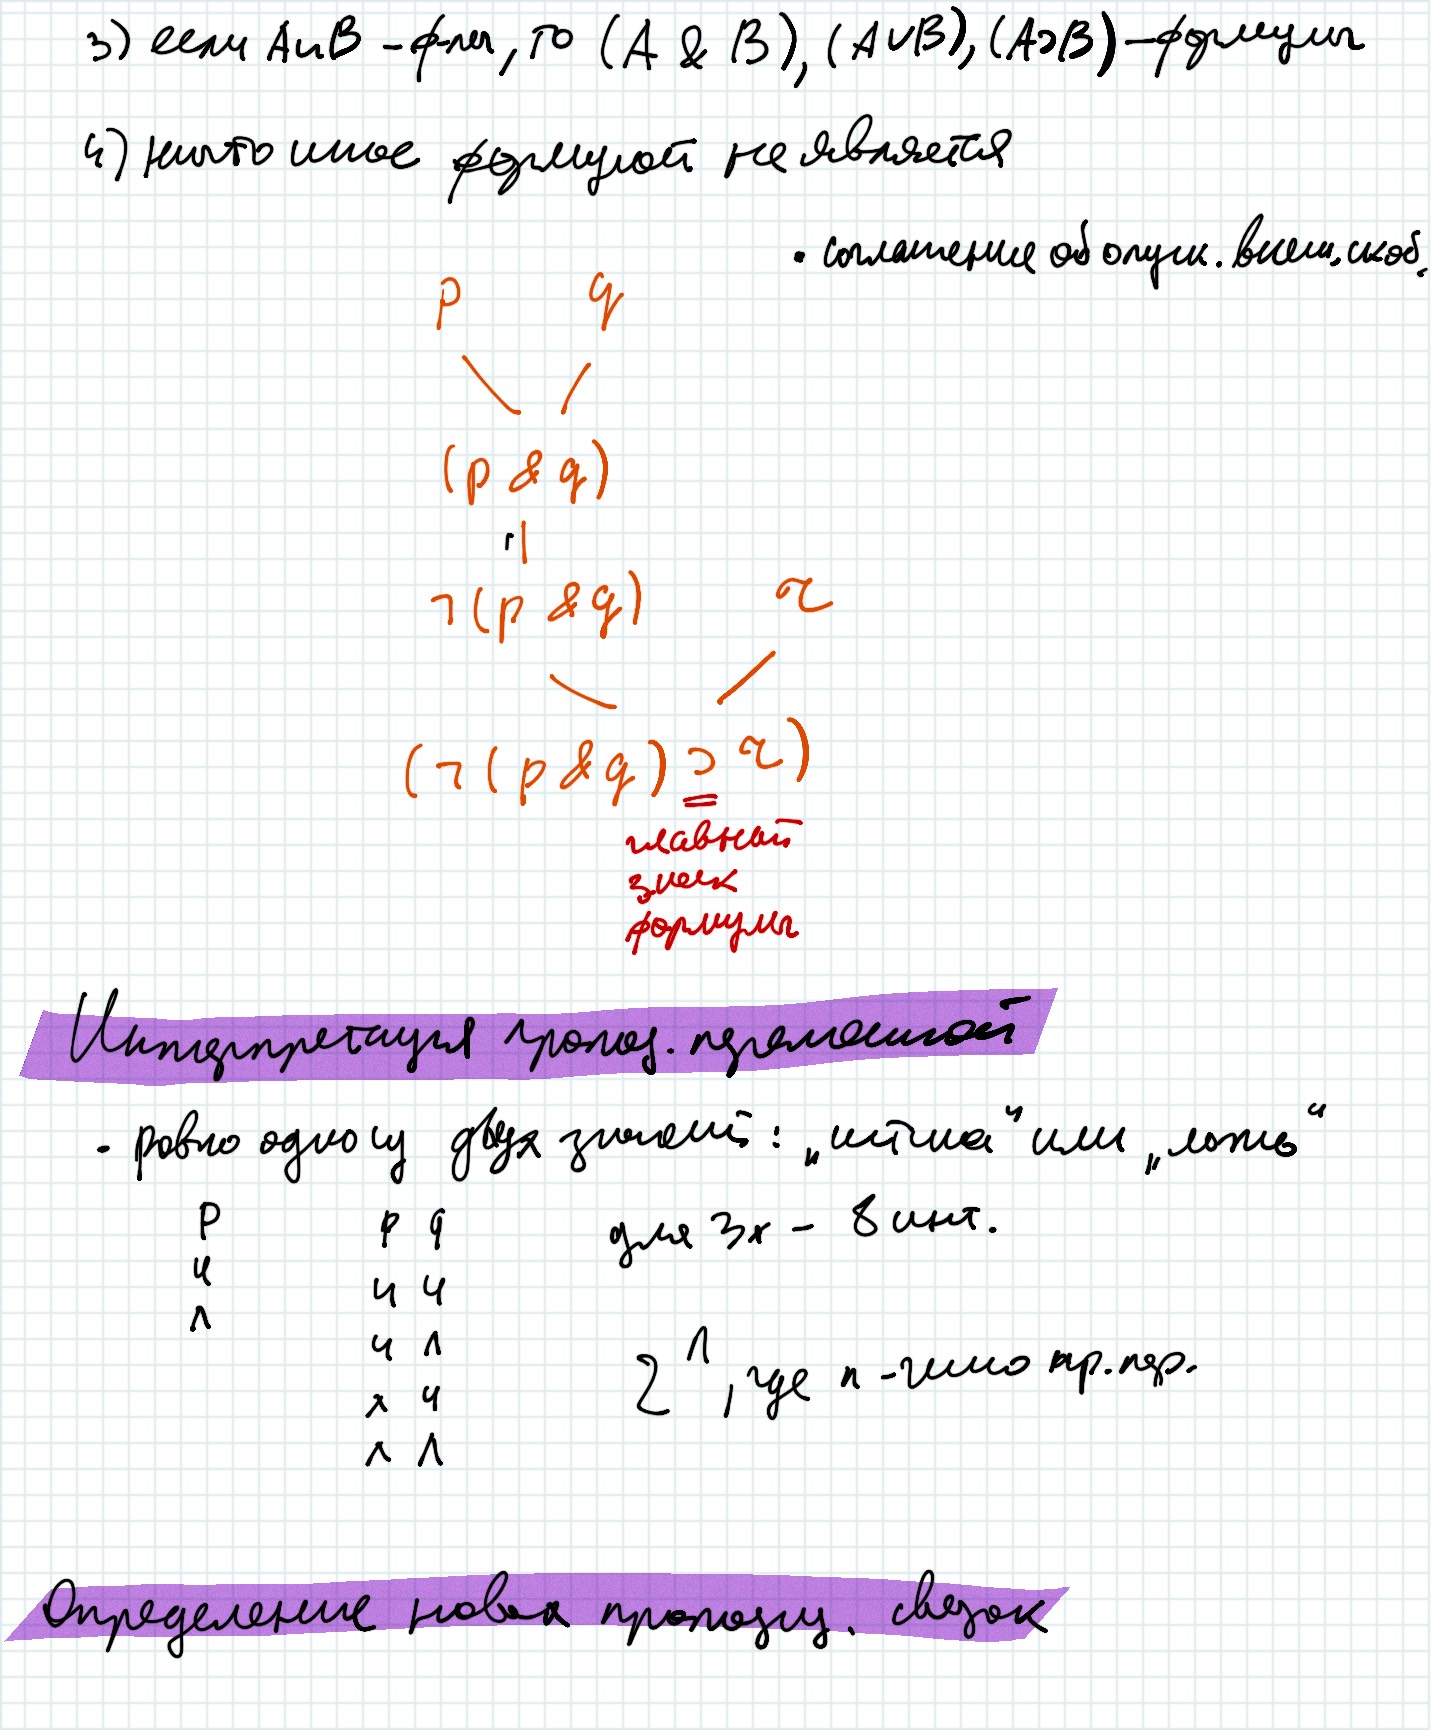 3) если A и B – ф-лы, то (A & B), (A∨B), (A⊃B) – формулы
4) ничто иное формулой не является
• соглашение об опуск. внеш. скоб.
p q
(p & q)
¬(p & q) r
(¬(p & q) ⊃ r)
главный
знак
формулы
Интерпретация пропоз. переменной
• ровно одно из двух значений: „истина“ или „ложь“
p p q для 3х – 8 инт.
и и и
л и л
л и 2ⁿ, где n – число пр. пер.
л л
Определение новых пропозиц. связок